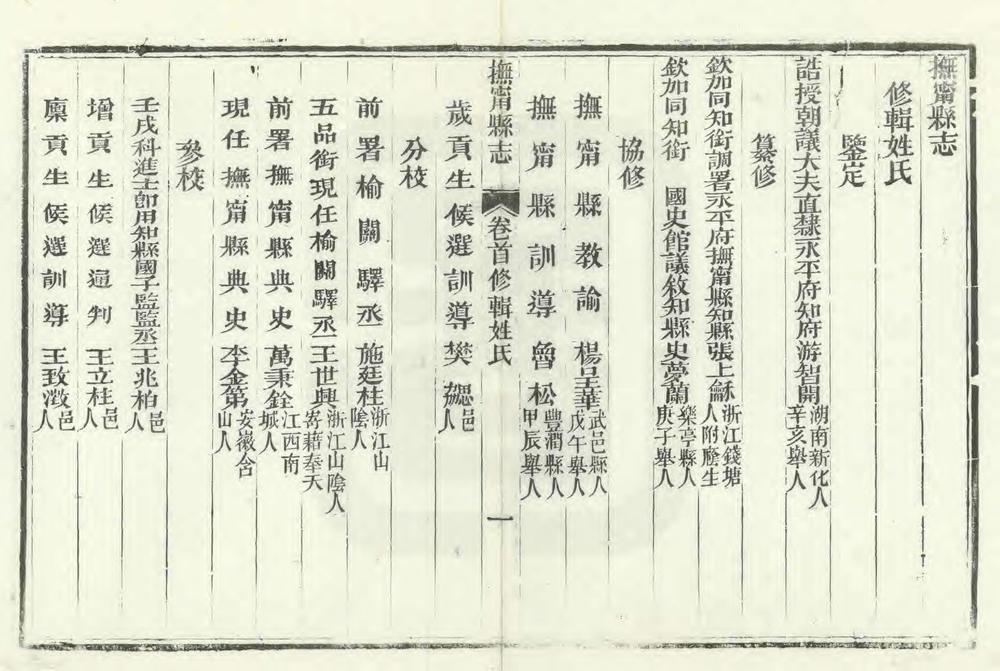 撫甯縣志
修輯姓氏
鑒定
誥授朝議大夫直隸永平府知府游智開湖南新化人辛亥舉人
纂修
欽加同知銜調署永平府撫甯縣知縣張上龢浙江錢塘人附廩生
欽加同知銜 國史館議敘知縣史夢蘭樂亭縣人庚子舉人
協修
撫甯縣教諭楊呈華武邑縣人戊午舉人
撫甯縣訓導魯松豐潤縣人甲辰舉人
撫甯縣志 卷首修輯姓氏 一
歲貢生候選訓導樊邑人
分校
前署榆關驛丞施廷柱浙江山陰人
五品銜現任榆關驛丞王世興浙江山陰人寄藉奉天
前署撫甯縣典史萬秉銓江西南城人
現任撫甯縣典史李金第安徽含山人
參校
壬戌科進士即用知縣國子監監丞王兆柏邑人
增貢生候選通判王立柱邑人
廩貢生候選訓導王致澂邑人